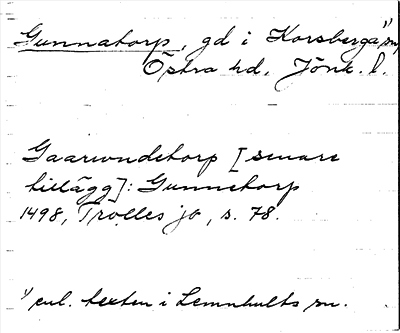 Gunnatorp, gd i Korsberga¹⁾ sn,
Östra hd. Jönk. l.
Gaarwndetorp [senare
tillägg]: Gunnetorp
1498, Trolles jb, s. 78.
¹⁾ enl. texten i Lemnhults sn.